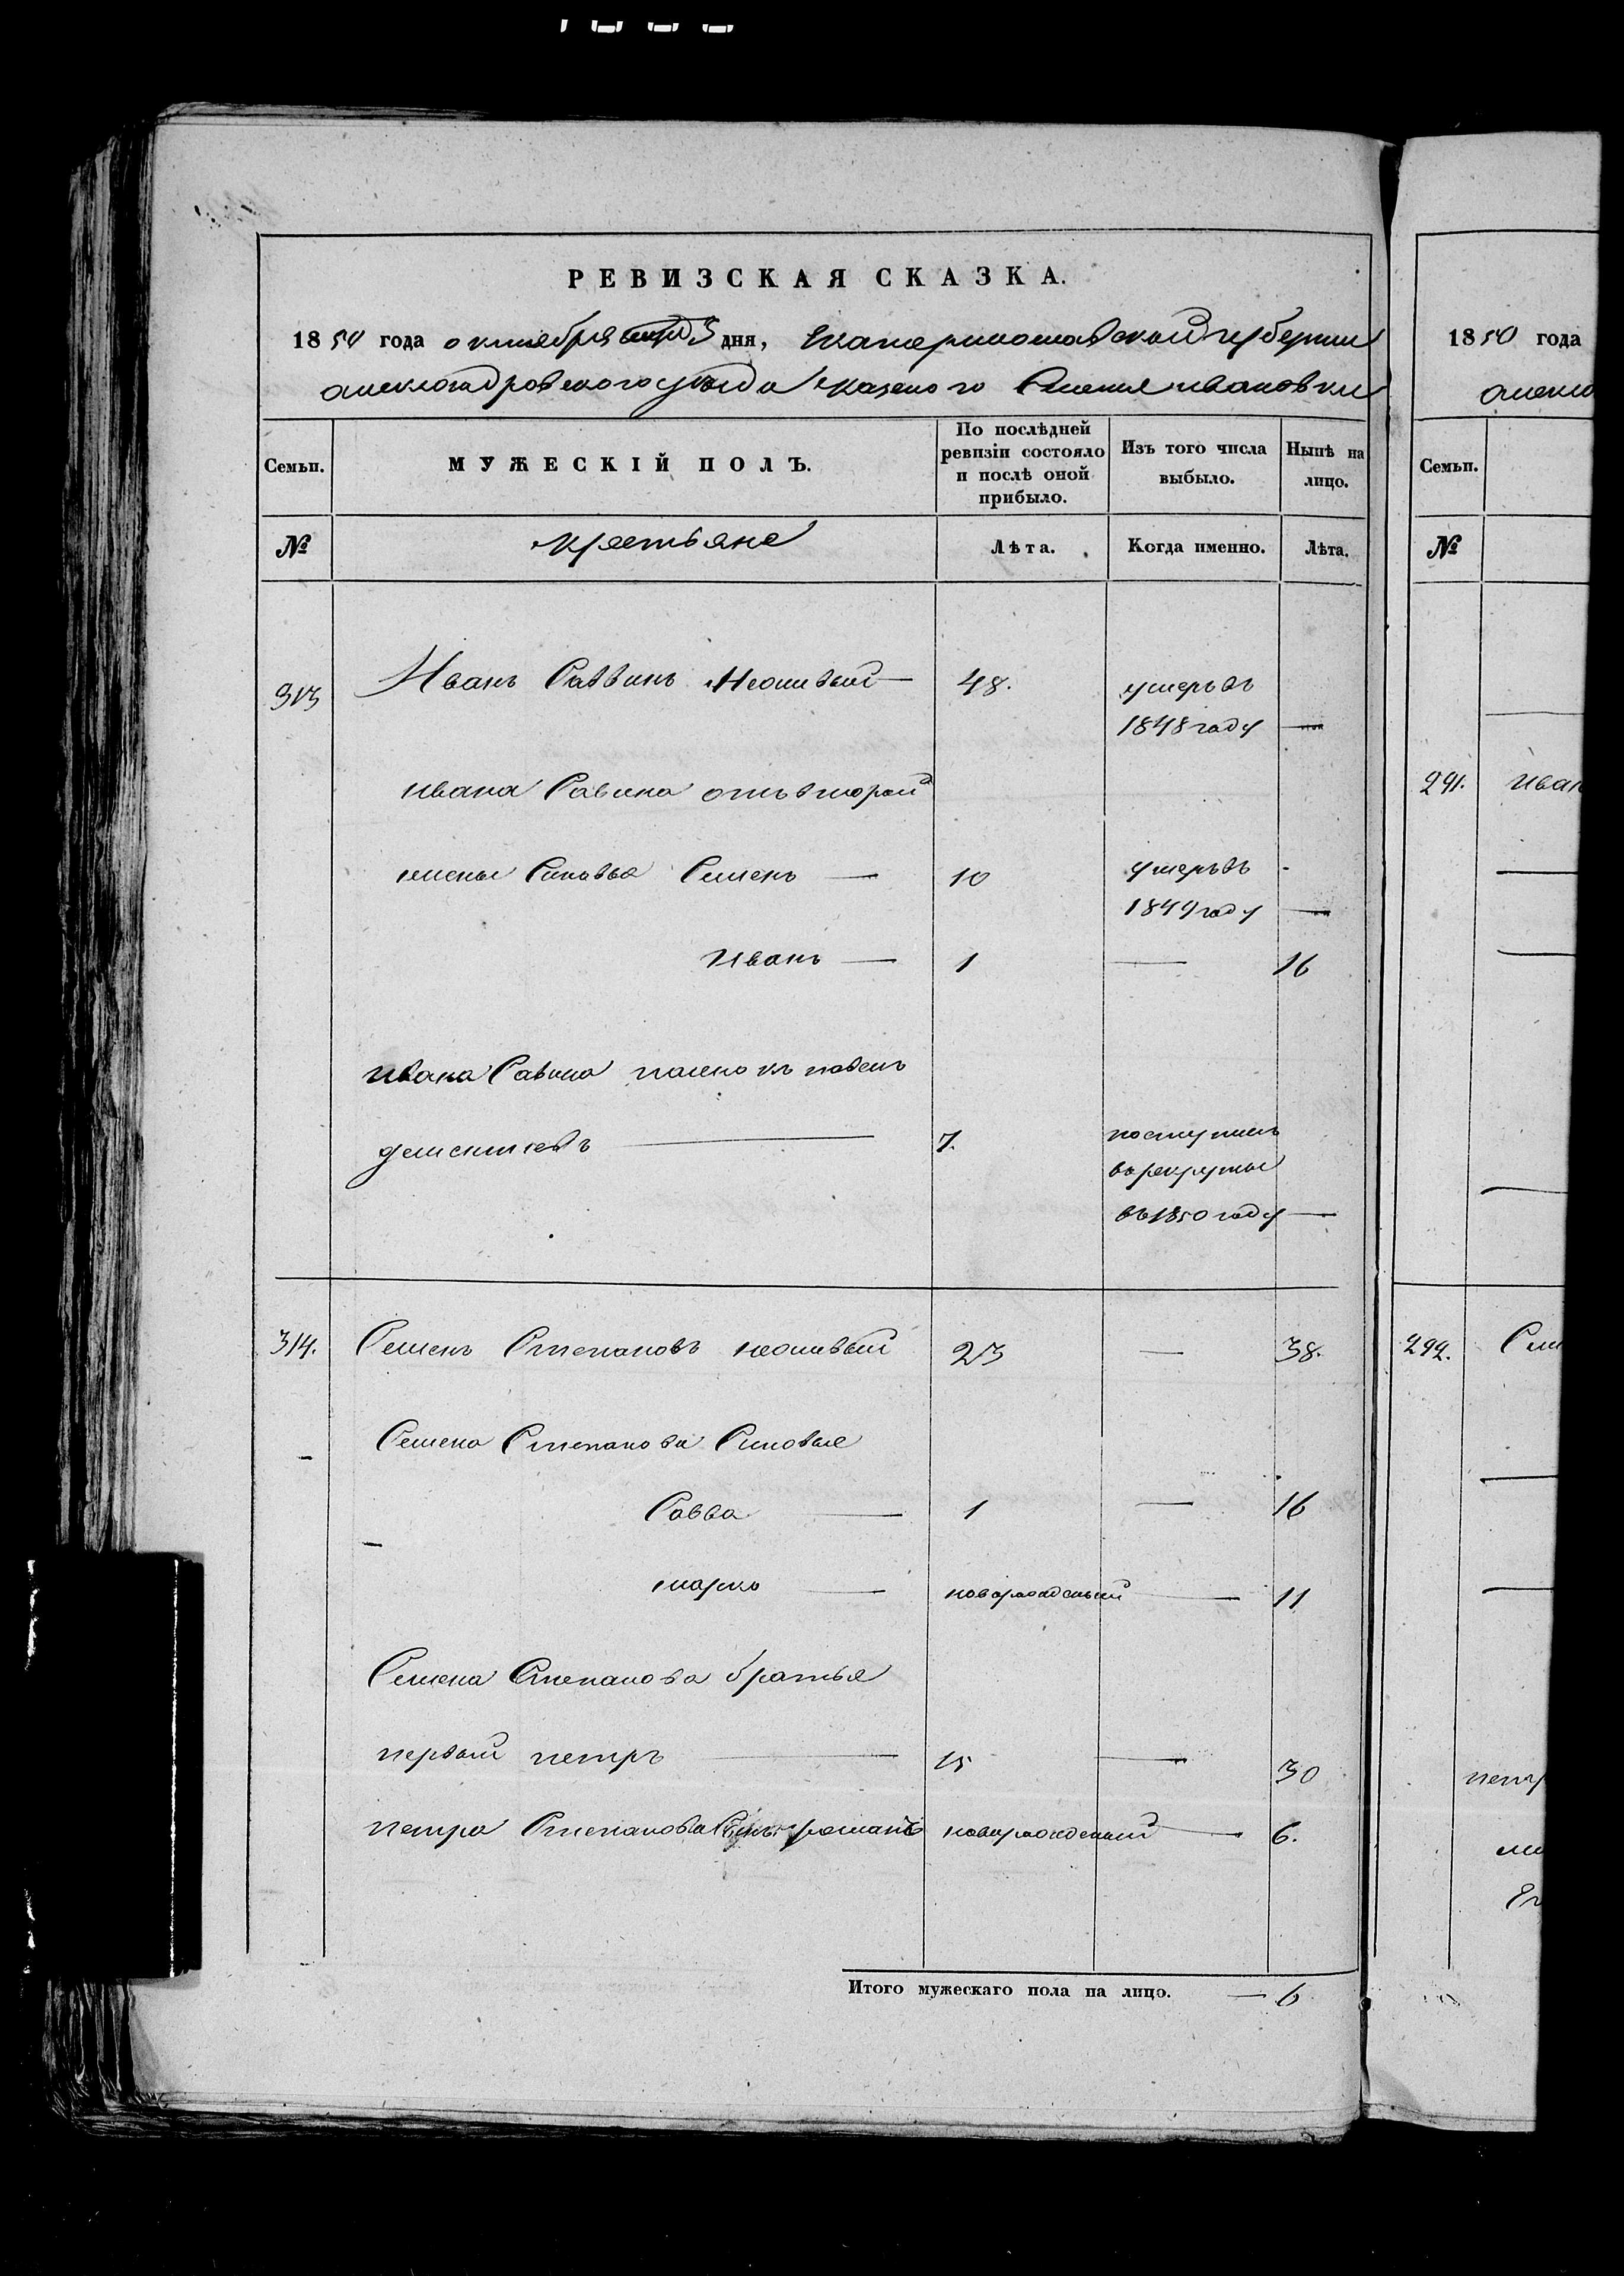 РЕВИЗСКАЯ СКАЗКА.
1850 года октября 3 дня, Екатеринославской губернии
александровского уезда казеного Селения ивановки
Семьи. МУЖЕСКІЙ ПОЛЪ. По послѣдней ревизіи состояло и послѣ оной прибыло. Изъ того числа выбыло. Нынѣ на лицо.
№ крестьяне Лѣта. Когда именно. Лѣта.
313 Иванъ Саввинъ 48. умеръ въ
1848 году —
ивана Савина отъ второй
жены Синовья Семенъ — 10 умеръ въ
1849 году —
Иванъ — 1 — 16
ивана Савина
дементиевъ — 7. поступилъ
в рекруты
въ 1850 году —
314. Семенъ Степановъ 23 — 38.
Семена Степанова Синовье
Савва — 1 — 16
марко — новорожденый — 11
Семена Степанова братья
первый петръ — 15 — 30
петра Степанова Сынъ романъ новорожденый — 6.
Итого мужескаго пола на лицо. — 6
1850 года
алексо
Семьи.
№
291. Иван
292. Сем
петр